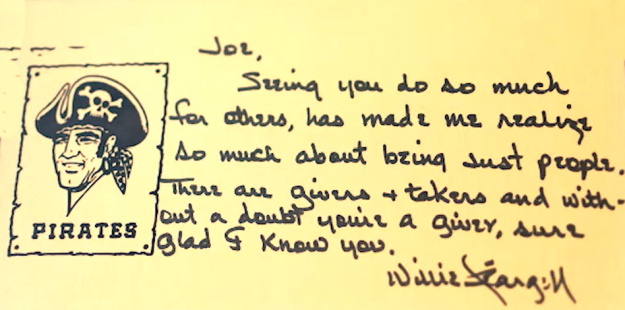 Joe,
Seeing you do so much
for others, has made me realize
so much about being just people.
There are givers + takers and with-
out a doubt you're a giver, sure
glad I know you.
Willie Stargell
PIRATES